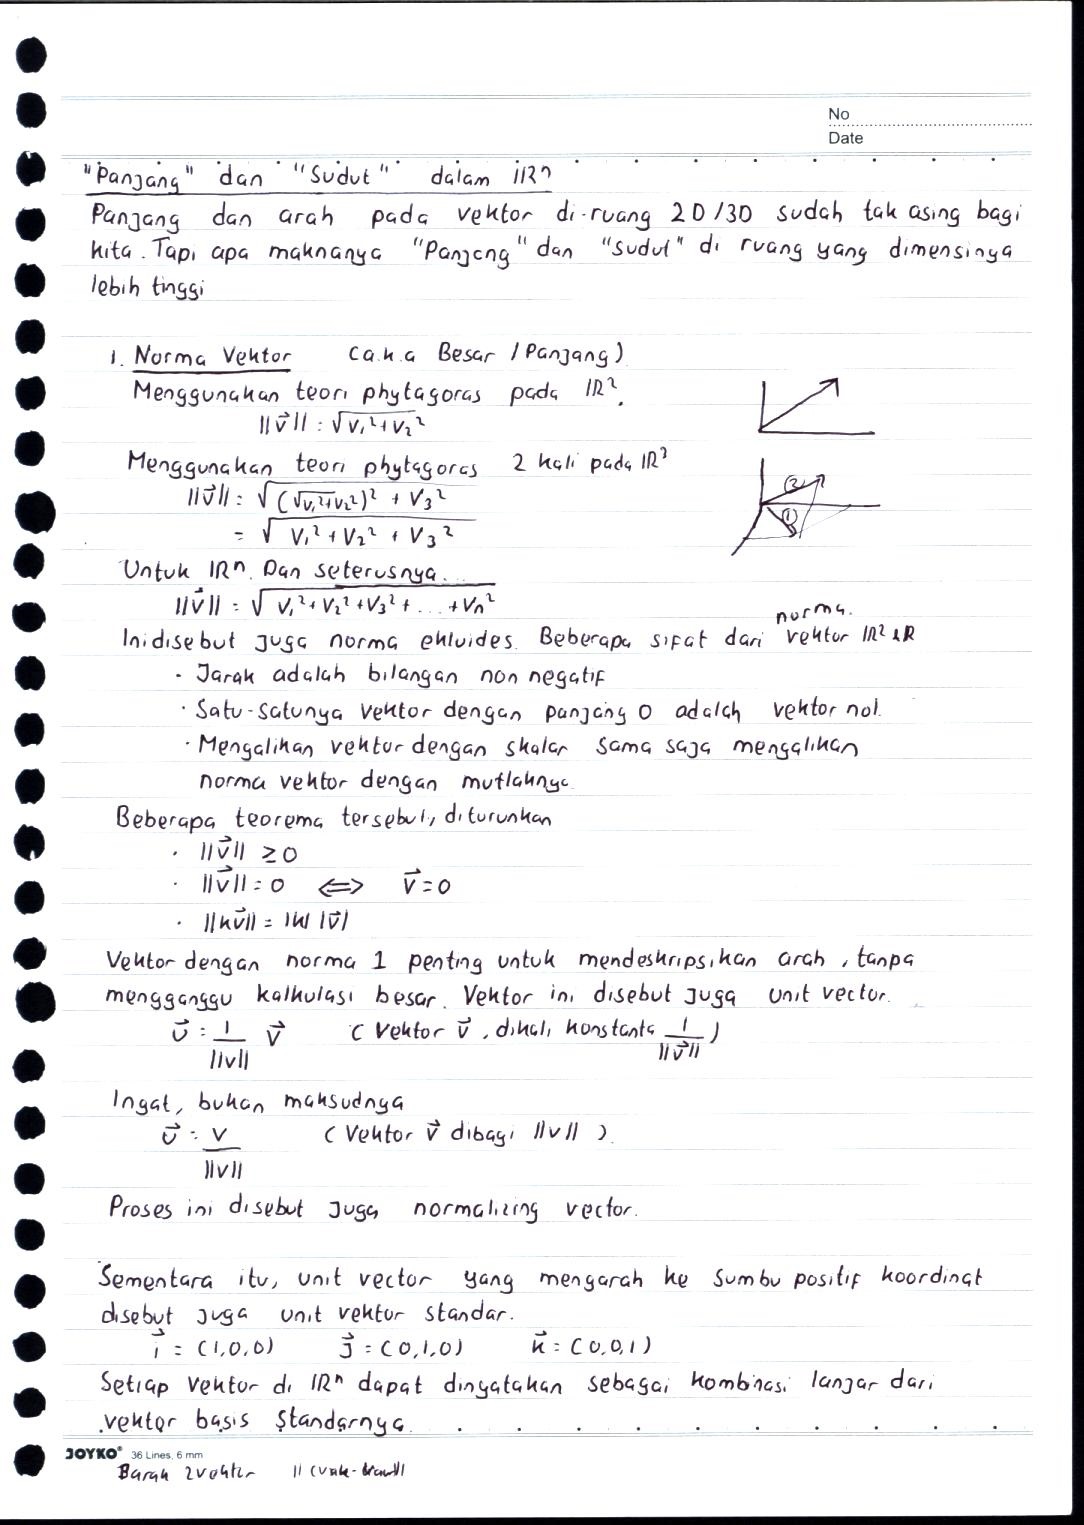 No
Date
"Panjang" dan "Sudut" dalam ℝⁿ
Panjang dan arah pada vektor di-ruang 2D/3D sudah tak asing bagi
kita. Tapi apa maknanya "Panjang" dan "sudut" di ruang yang dimensinya
lebih tinggi
1. Norma Vektor (a.k.a Besar / Panjang)
Menggunakan teori phytagoras pada ℝ².
||v⃗|| = √(v₁² + v₂²)
Menggunakan teori phytagoras 2 kali pada ℝ³
||v⃗|| = √((√(v₁² + v₂²))² + v₃²)
= √(v₁² + v₂² + v₃²)
(2)
(1)
Untuk ℝⁿ. Dan seterusnya...
||v⃗|| = √(v₁² + v₂² + v₃² + ... + vₙ²)
norma.
Ini disebut juga norma ekluides. Beberapa sifat dari vektor ℝ² & ℝ
· Jarak adalah bilangan non negatif
· Satu-satunya vektor dengan panjang 0 adalah vektor nol.
· Mengalikan vektor dengan skalar sama saja mengalikan
norma vektor dengan mutlaknya.
Beberapa teorema tersebut, diturunkan
· ||v⃗|| ≥ 0
· ||v⃗|| = 0 ⟺ v⃗ = 0
· ||kv⃗|| = |k| |v⃗|
Vektor dengan norma 1 penting untuk mendeskripsikan arah, tanpa
mengganggu kalkulasi besar. Vektor ini disebut juga unit vector.
u⃗ = 1/||v|| v⃗ (Vektor v⃗, dikali konstanta 1/||v⃗||)
Ingat, bukan maksudnya
u⃗ = v/||v|| (Vektor v⃗ dibagi ||v||).
Proses ini disebut juga normalizing vector.
Sementara itu, unit vector yang mengarah ke sumbu positif koordinat
disebut juga unit vektor standar.
i⃗ = (1,0,0) j⃗ = (0,1,0) k⃗ = (0,0,1)
Setiap vektor di ℝⁿ dapat dinyatakan sebagai kombinasi lanjar dari
vektor basis standarnya.
JOYKO® 36 Lines, 6 mm
2 vektor